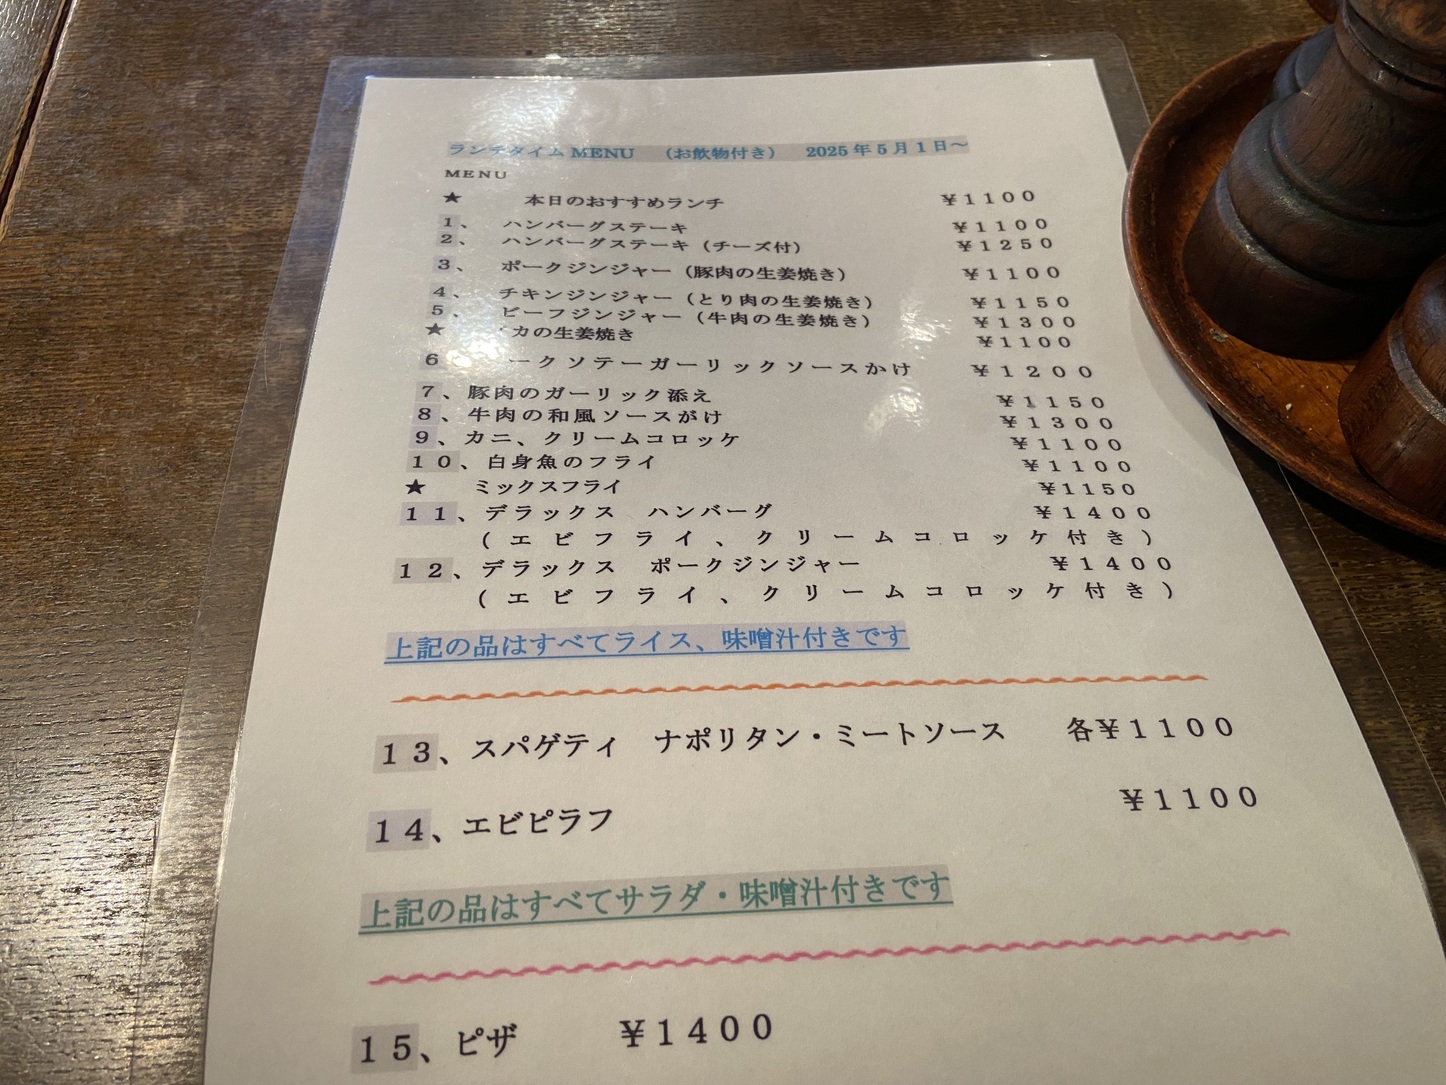 ランチタイムMENU （お飲物付き） 2025年5月1日～
MENU
★ 本日のおすすめランチ ￥1100
1、 ハンバーグステーキ ￥1100
2、 ハンバーグステーキ（チーズ付） ￥1250
3、 ポークジンジャー（豚肉の生姜焼き） ￥1100
4、 チキンジンジャー（とり肉の生姜焼き） ￥1150
5、 ビーフジンジャー（牛肉の生姜焼き） ￥1300
★ カの生姜焼き ￥1100
6 ークソテーガーリックソースかけ ￥1200
7、豚肉のガーリック添え ￥1150
8、牛肉の和風ソースがけ ￥1300
9、カニ、クリームコロッケ ￥1100
10、白身魚のフライ ￥1100
★ ミックスフライ ￥1150
11、デラックス ハンバーグ ￥1400
（エビフライ、クリームコロッケ付き）
12、デラックス ポークジンジャー ￥1400
（エビフライ、クリームコロッケ付き）
上記の品はすべてライス、味噌汁付きです
13、スパゲティ ナポリタン・ミートソース 各￥1100
14、エビピラフ ￥1100
上記の品はすべてサラダ・味噌汁付きです
15、ピザ ￥1400